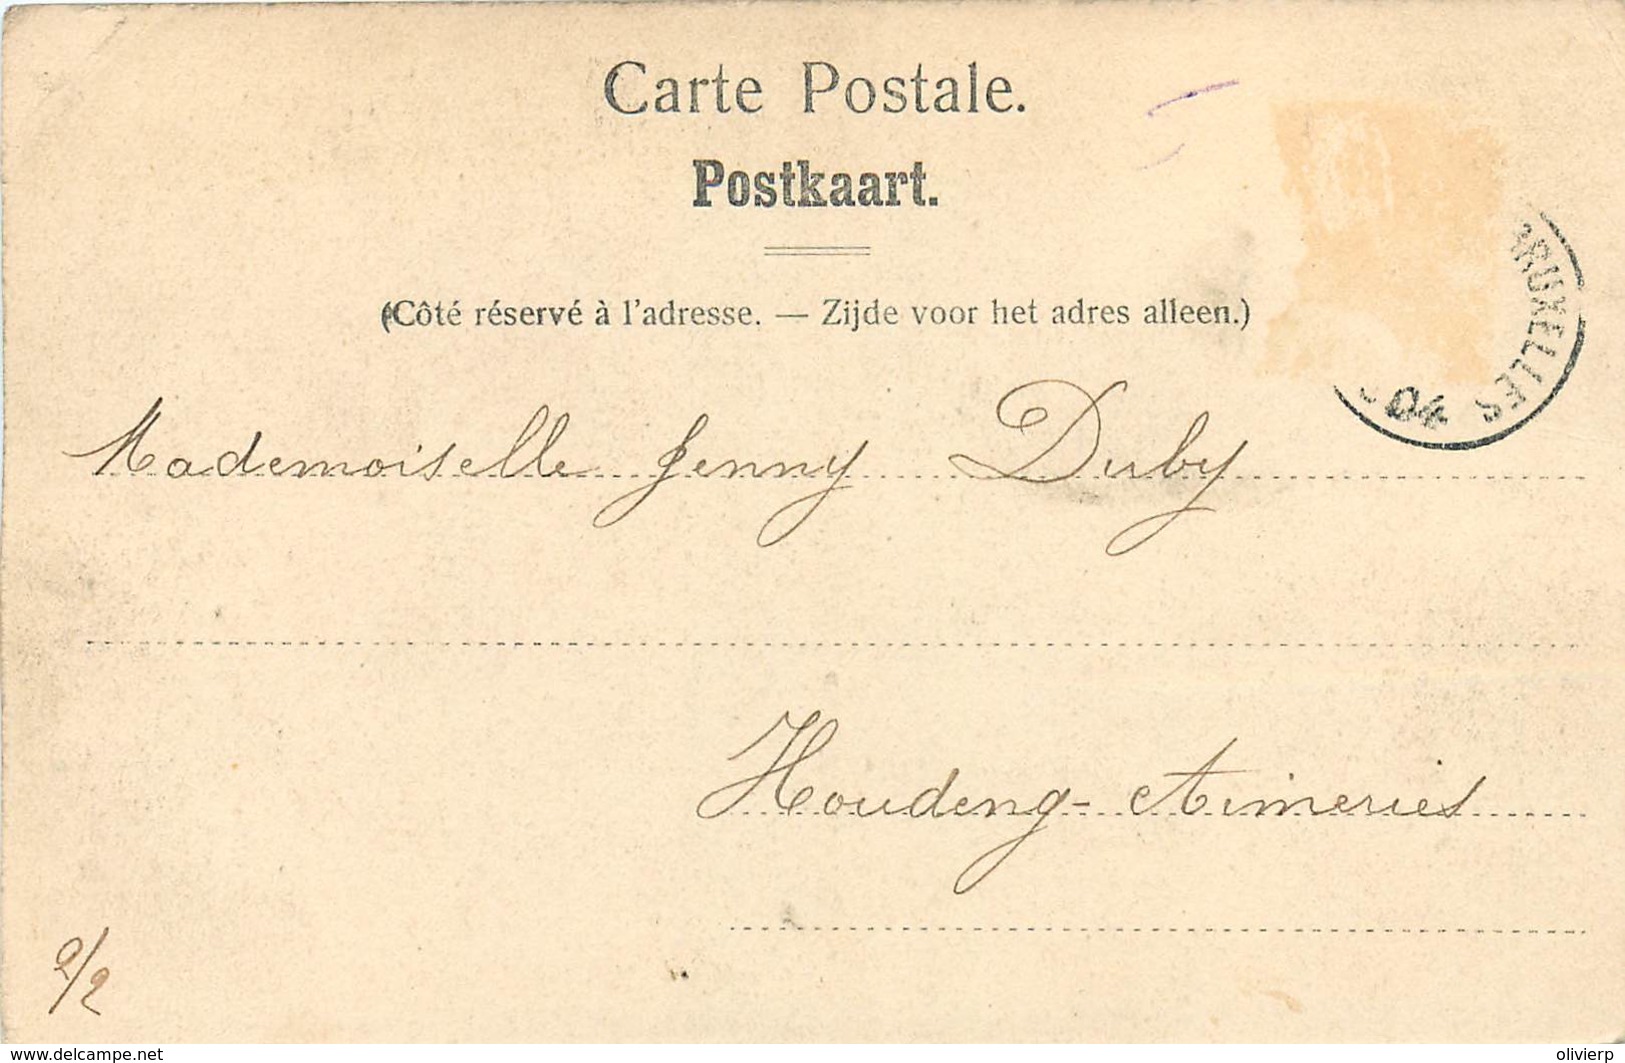 Carte Postale.
Postkaart.
(Côté réservé à l'adresse. — Zijde voor het adres alleen.)
BRUXELLES
04
Mademoiselle Jenny Duby
Houdeng-Aimeries
2/2
www.delcampe.net
olivierp